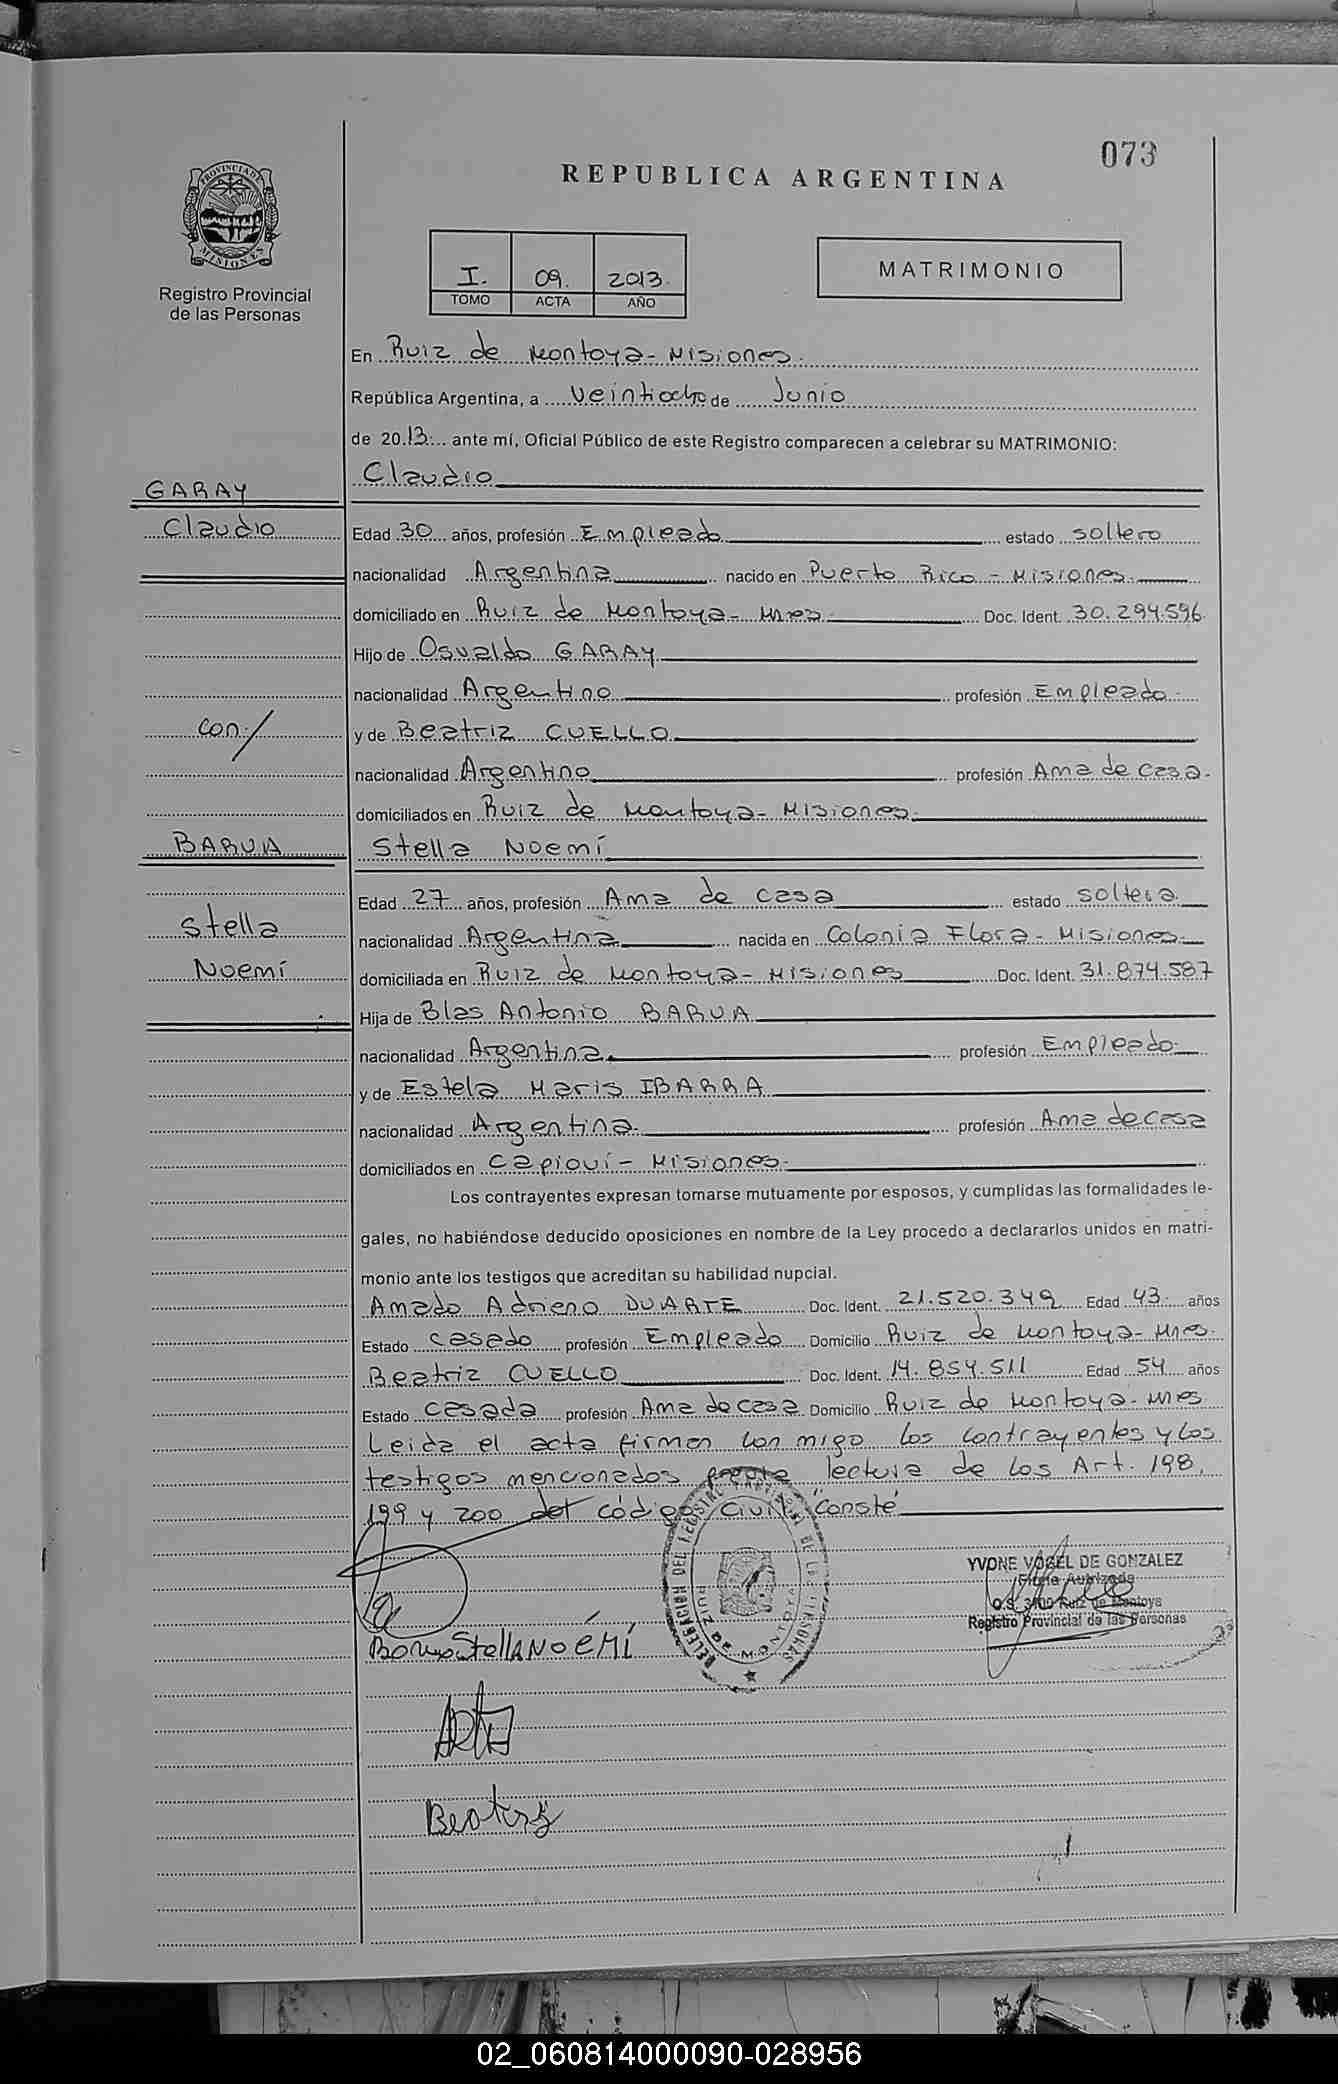 073
REPUBLICA ARGENTINA
PROVINCIA DE MISIONES
Registro Provincial
de las Personas
I. 09. 2013.
TOMO ACTA AÑO
MATRIMONIO
En Ruiz de Montoya - Misiones.
República Argentina, a veintiocho de Junio
de 2013 ante mí, Oficial Público de este Registro comparecen a celebrar su MATRIMONIO:
GARAY Claudio
Claudio Edad 30 años, profesión Empleado estado soltero
nacionalidad Argentina nacido en Puerto Rico - Misiones.
domiciliado en Ruiz de Montoya - Mnes. Doc. Ident. 30.294.596
Hijo de Osvaldo GARAY
nacionalidad Argentino profesión Empleado.
con/ y de Beatriz CUELLO
nacionalidad Argentino profesión Ama de casa.
domiciliados en Ruiz de Montoya - Misiones.
BARUA Stella Noemí
Edad 27 años, profesión Ama de casa estado soltera
Stella nacionalidad Argentina nacida en Colonia Flora - Misiones.
Noemí domiciliada en Ruiz de Montoya - Misiones Doc. Ident. 31.874.587
Hija de Blas Antonio BARUA
nacionalidad Argentina. profesión Empleado.
y de Estela Maris IBARRA
nacionalidad Argentina. profesión Ama de casa
domiciliados en Capioví - Misiones.
Los contrayentes expresan tomarse mutuamente por esposos, y cumplidas las formalidades le-
gales, no habiéndose deducido oposiciones en nombre de la Ley procedo a declararlos unidos en matri-
monio ante los testigos que acreditan su habilidad nupcial.
Amado Adriano DUARTE Doc. Ident. 21.520.349 Edad 43 años
Estado casado profesión Empleado Domicilio Ruiz de Montoya - Mnes.
Beatriz CUELLO Doc. Ident. 14.854.511 Edad 54 años
Estado casada profesión Ama de casa Domicilio Ruiz de Montoya - Mnes
Leida el acta firman con migo los contrayentes y los
testigos mencionados previa lectura de los Art. 198,
199 y 200 del código Civil "Conste"
DELEGACION DEL REGISTRO PROVINCIAL DE LAS PERSONAS
RUIZ DE MONTOYA
YVONE VOGEL DE GONZALEZ
Firma Autorizada
Ruiz de Montoya
Registro Provincial de las Personas
Stella NOEMÍ
Beatriz
02_060814000090-028956